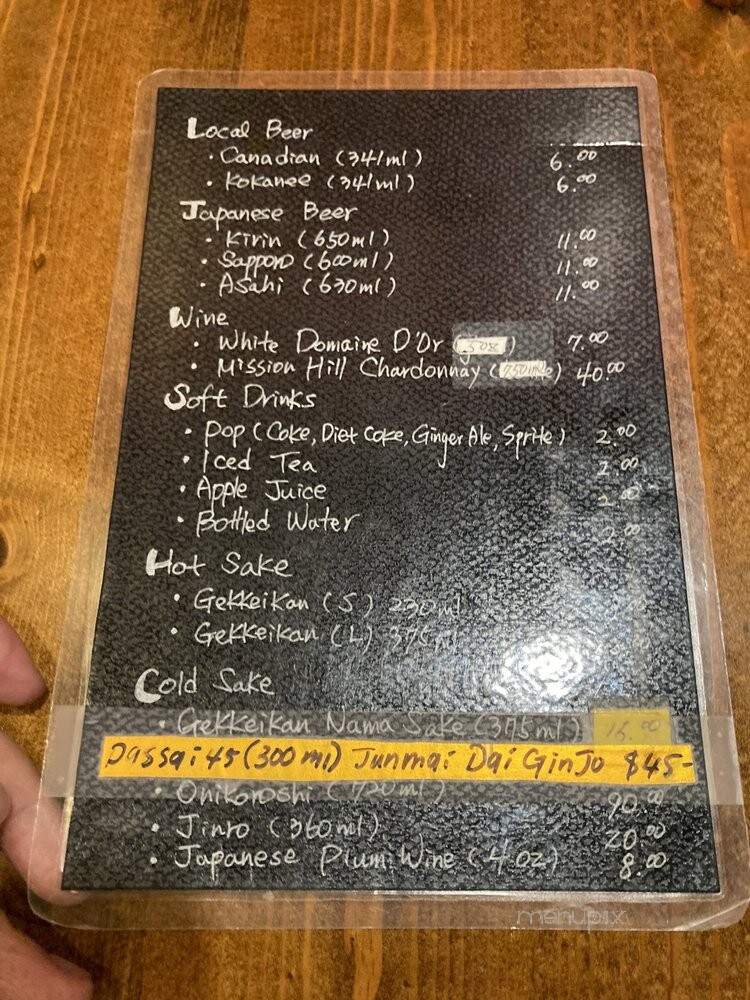 Local Beer
· Canadian (341ml) 6.00
· Kokanee (341ml) 6.00
Japanese Beer
· Kirin (650ml) 11.00
· Sapporo (600ml) 11.00
· Asahi (630ml) 11.00
Wine
· White Domaine D'Or (5oz) 7.00
· Mission Hill Chardonnay (750ml) 40.00
Soft Drinks
· Pop (Coke, Diet Coke, Ginger Ale, Sprite) 2.00
· Iced Tea 2.00
· Apple Juice 2.00
· Bottled Water 2.00
Hot Sake
· Gekkeikan (S) 230ml
· Gekkeikan (L) 375ml
Cold Sake
· Gekkeikan Nama Sake (375ml) 16.00
Dassai 45 (300 ml) Junmai Dai Ginjo $45-
· Onikoroshi (720ml) 90.00
· Jinro (360ml) 20.00
· Japanese Plum Wine (4oz) 8.00
menupix